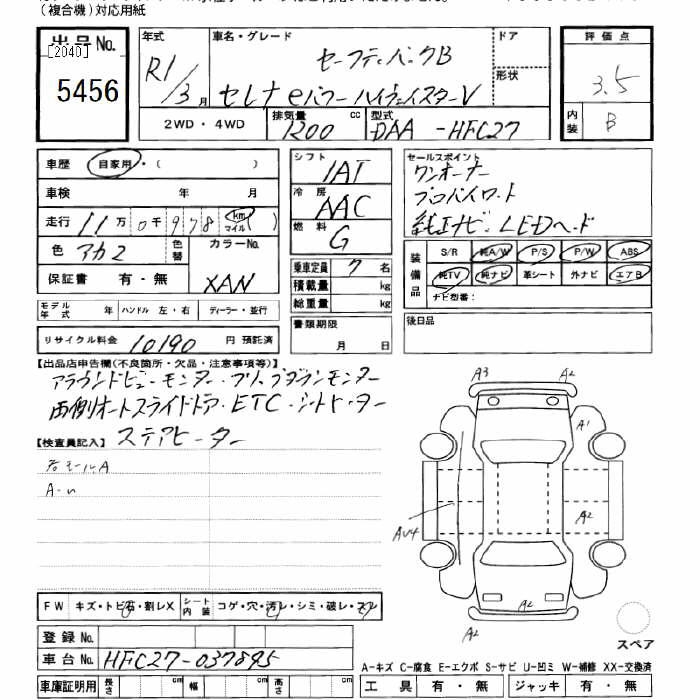 （複合機）対応用紙
出品No.
[2040]
5456
年式
R1/3月
車名・グレード
セーフティパックB
セレナ eパワー ハイウェイスターV
ドア
形状
評価点
3.5
内装
B
2WD・4WD
排気量 1200 cc
型式 DAA-HFC27
車歴 自家用・（ ）
車検 年 月
走行 11万0千978 km マイル ( )
色 アカ2 色替
カラーNo. XAN
保証書 有・無
モデル年式 年 ハンドル 左・右 ディーラー・並行
リサイクル料金 10190 円 預託済
シフト IAT
冷房 AAC
燃料 G
乗車定員 7 名
積載量 kg
総重量 kg
書類期限
月 日
セールスポイント
ワンオーナー
プロパイロット
純正ナビ LEDヘッド
装備品
S/R 純A/W P/S P/W ABS
純TV 純ナビ 革シート 外ナビ エアB
ナビ型番：
後日品
【出品店申告欄(不良箇所・欠品・注意事項等)】
アラウンドビューモニター・フリップダウンモニター
両側オートスライドドア・ETC・シートヒーター
ステアヒーター
【検査員記入】
右モールA
A-u
A3
A2
A1
A2
AU4
A2
A2
スペア
FW キズ・トビ石・割レX
シート内装 コゲ・穴・汚レ・シミ・破レ・スレ
登録No.
車台No. HFC27-037895
車庫証明用 長さ cm 幅 cm 高さ cm
A-キズ C-腐食 E-エクボ S-サビ U-凹ミ W-補修 XX-交換済
工具 有・無 ジャッキ 有・無